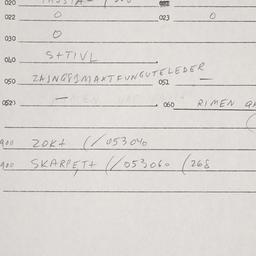 020
022 0 023 0
030 0
040 S+TIVL
050 051 —
052) —
060 RIMEN
900 ZOK+ (/ 053040
900 SKARPET+ (/ 053060 (268